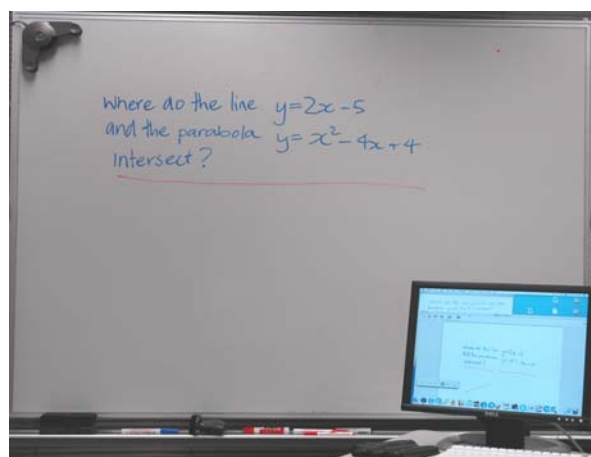 where do the line y=2x-5
and the parabola y=x²-4x+4
intersect?
DELL